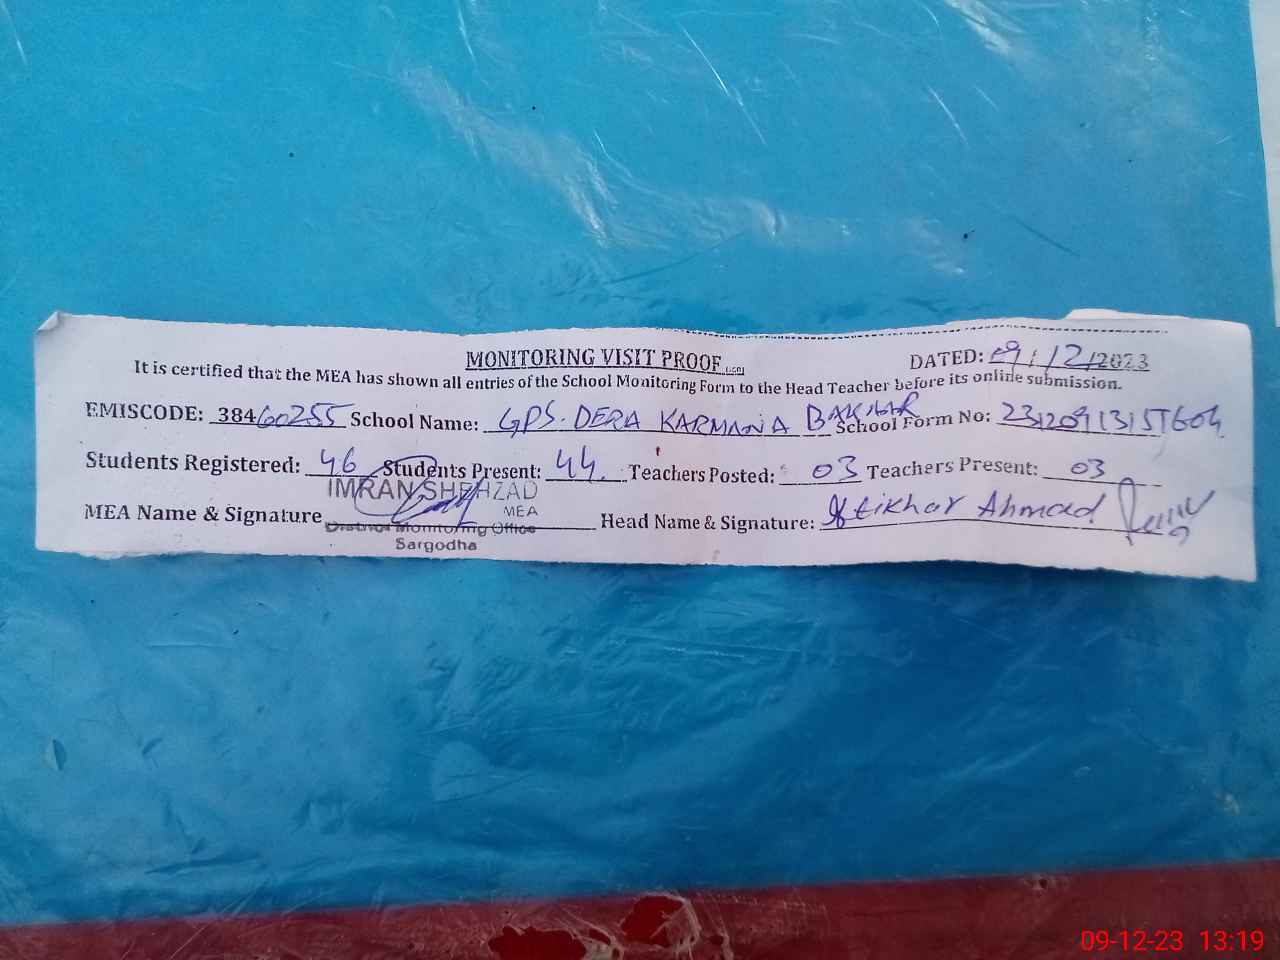 MONITORING VISIT PROOF
DATED: 09/12/2023
It is certified that the MEA has shown all entries of the School Monitoring Form to the Head Teacher before its online submission.
EMISCODE: 38460255 School Name: GPS. DERA KARMANA BAKHAR School Form No:
Students Registered: 46 Students Present: 44 Teachers Posted: 03 Teachers Present: 03
IMRAN SHEHZAD
MEA
MEA Name & Signature Head Name & Signature: Iftikhar Ahmad
District Monitoring Office
Sargodha
09-12-23 13:19